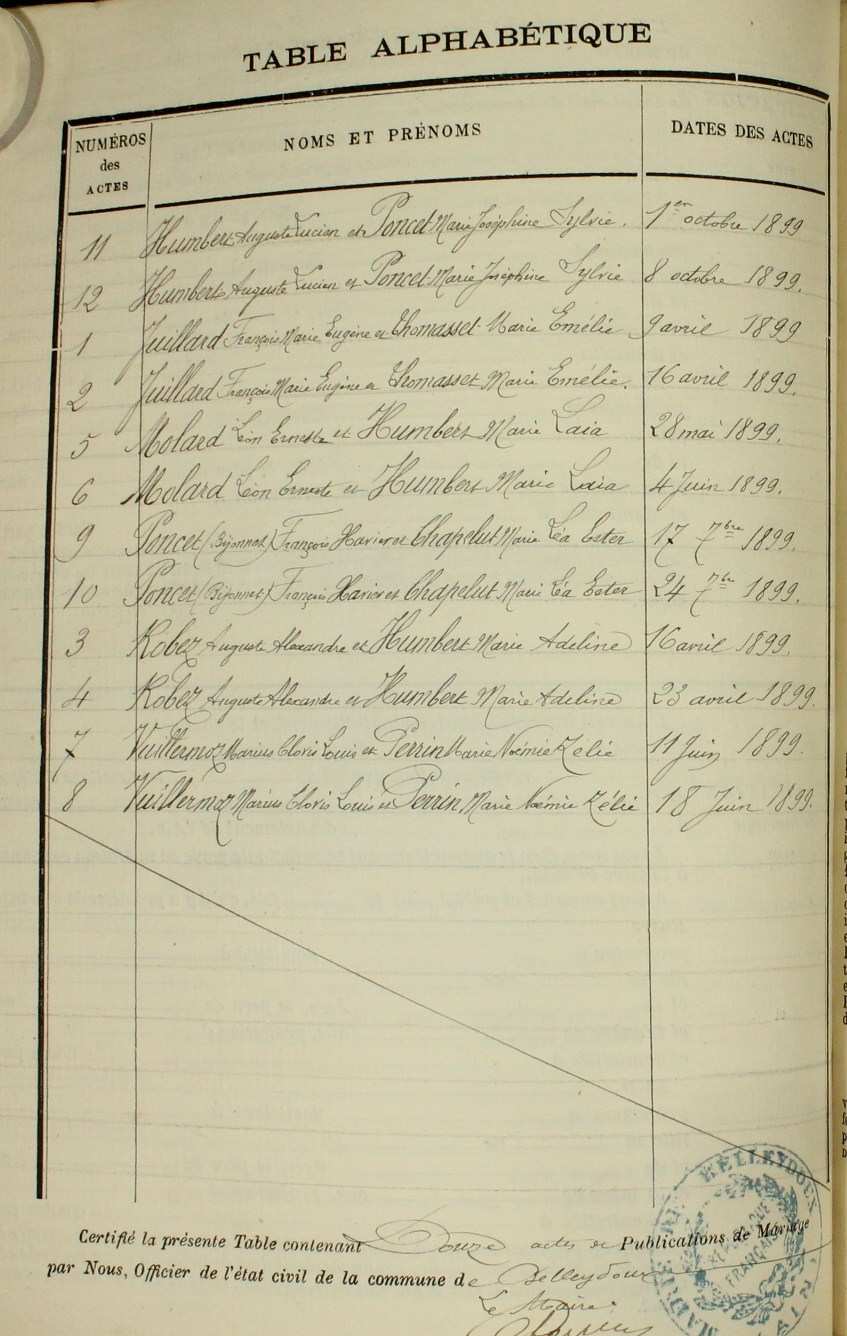 TABLE ALPHABÉTIQUE
NUMÉROS des ACTES NOMS ET PRÉNOMS DATES DES ACTES
11 Humbert Auguste Lucien et Poncet Marie Joséphine Sylvie. 1er octobre 1899
12 Humbert Auguste Lucien et Poncet Marie Joséphine Sylvie 8 octobre 1899.
1 Juillard François Marie Eugène et Thomasset Marie Emélie 9 avril 1899
2 Juillard François Marie Eugène et Thomasset Marie Emélie. 16 avril 1899.
5 Molard Léon Erneste et Humbert Marie Laia 28 mai 1899.
6 Molard Léon Erneste et Humbert Marie Laia 4 Juin 1899.
9 Poncet (Bijonnet) François Xavier et Chapelut Marie Léa Ester 17 7bre 1899.
10 Poncet (Bijonnet) François Xavier et Chapelut Marie Léa Ester 24 7bre 1899.
3 Robez Auguste Alexandre et Humbert Marie Adeline 16 avril 1899.
4 Robez Auguste Alexandre et Humbert Marie Adeline 23 avril 1899.
7 Vuillermoz Marius Clovis Louis et Perrin Marie Noémie Zélie 11 Juin 1899.
8 Vuillermoz Marius Clovis Louis et Perrin Marie Noémie Zélie 18 Juin 1899.
Certifié la présente Table contenant Douze actes de Publications de Mariage
par Nous, Officier de l'état civil de la commune de Belleydoux
Le Maire.
MAIRIE BELLEYDOUX
RÉPUBLIQUE FRANÇAISE